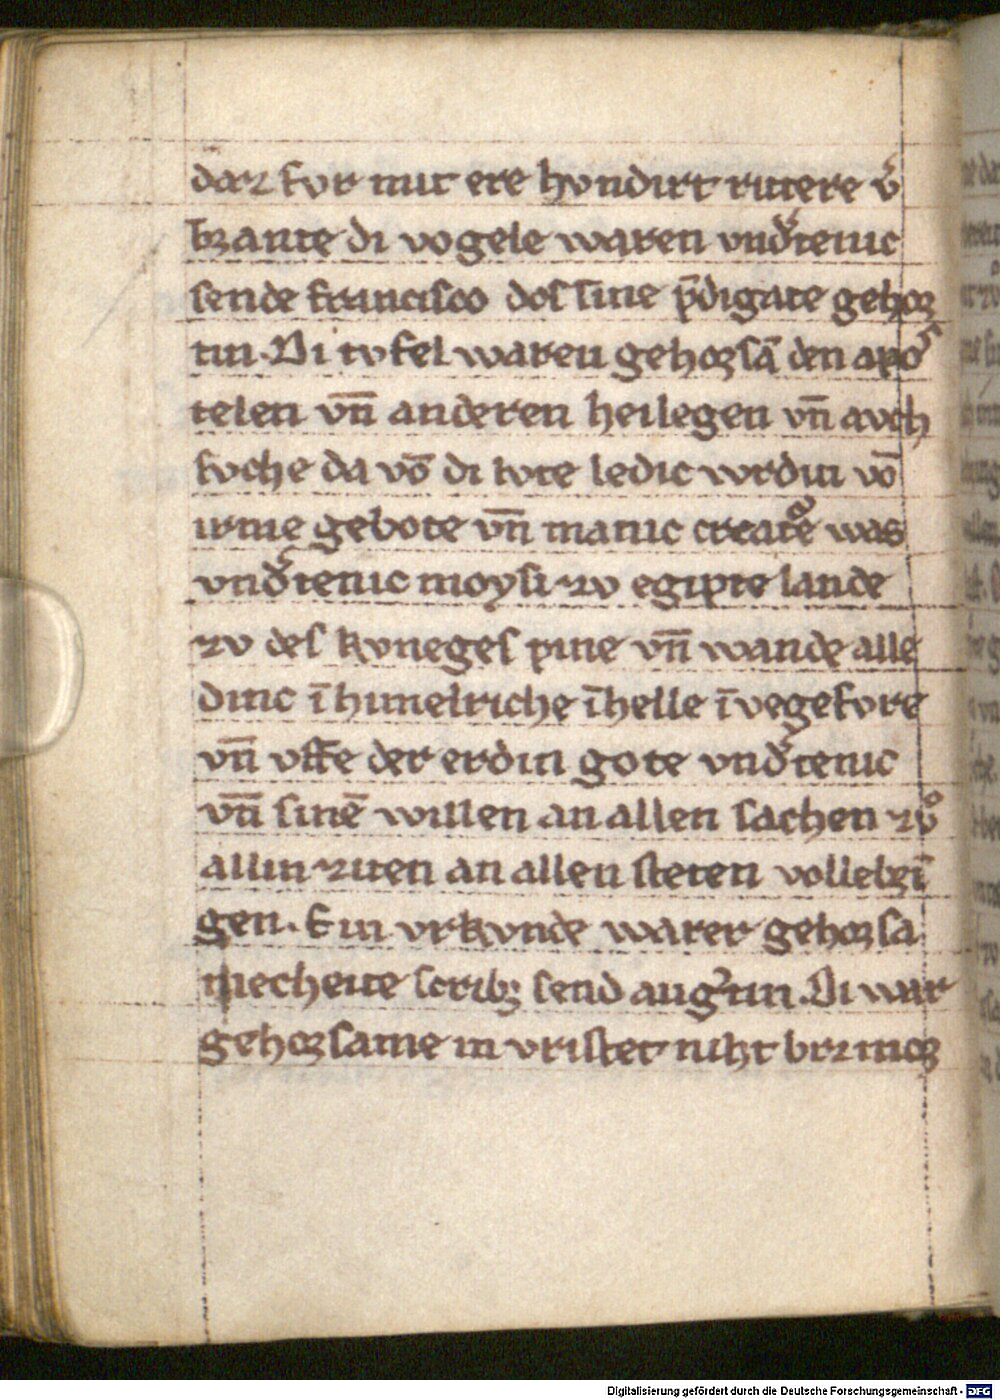 daz fvr mit ere hvndirt rittere v̄
bzante di vogele waren vnd͛tenic
sende francisco dos sine p̄digate gehoz
tin. Di tvfel waren gehozsā den apoˢ
telen vn̄ anderen heilegen vn̄ avch
svche da vō di lvte ledic wrdin vō
irme gebote vn̄ manic creatᵉe was
vnd͛tenic moysi zv egipte lande
zv des kvneges pine vn̄ wande alle
dinc ī himelriche ī helle ī vegefvre
vn̄ vffe der erdin gote vnd͛tenic
vn̄ sinē willen an allen sachen zvͦ
allin ziten an allen steten vollebzī
gen. Ein vrkvnde warer gehozsa
mecheite scribꝫ send aug͛tin. Di war
gehozsame in vristet niht brimoz
Digitalisierung gefördert durch die Deutsche Forschungsgemeinschaft - DFG